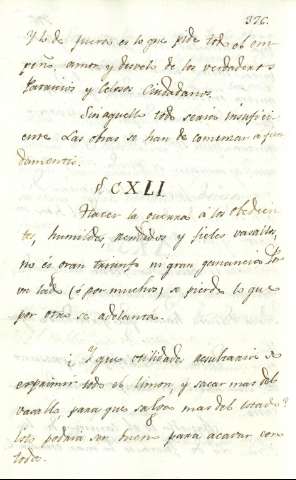 376.
Y lo de fuera es lo que pide todo el em
peño, amor, y desvelo de los verdaderos
Patricios y Celosos Ciudadanos.
Sin aquello todo seria insufici
ente. Las obras se han de comenzar a fun
damentis.
§. CXLI.
Hacer la guerra á los obedien
tes, humildes, rendidos y fieles vasallos,
no és gran triunfo ni gran ganancia. Por
un lado (ó por muchos) se pierde lo que
por otro se adelanta.
¿Y que utilidad resultaria de
exprimir todo el limon, y sacar mas del
vasallo, para que salga mas del estado?
Esto podria ser bueno para acavar con
todo.